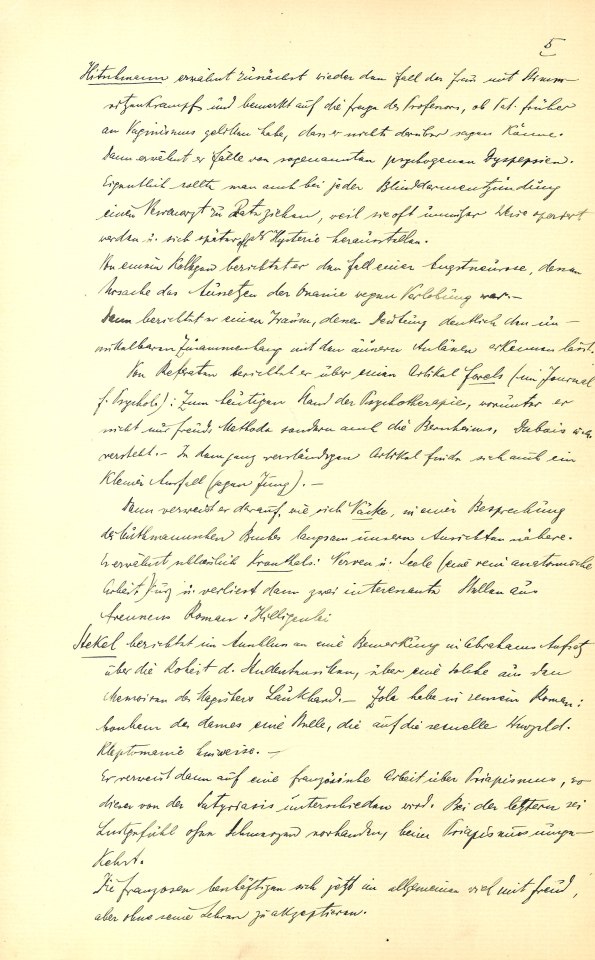 5
Hitschmann erwähnt zunächst wieder den Fall der Frau mit Stimm-
ritzenkrampf und bemerkt auf die Frage des Professors, ob Pat. früher
an Vaginismus gelitten habe, dass er nichts darüber sagen könne.
Dann erwähnt er Fälle von sogenannten psychogenen Dyspepsien.
Eigentlich sollte man auch bei jeder Blinddarmentzündung
einen Nervenarzt zu Rate ziehen, weil sie oft unnützer Weise operiert
werden u. sich später oft als Hysterie herausstellen.
Von einem Kollegen berichtet er den Fall einer Angstneurose, deren
Ursache das Aussetzen der Onanie wegen Verlobung war.–
Dann berichtet er einen Traum, dessen Deutung deutlich den un-
mittelbaren Zusammenhang mit den äussern Anlässen erkennen lässt.
Von Referaten berichtet er über einen Artikel Forels (im Journal
f. Psychol.): Zum heutigen Stand der Psychotherapie, worunter er
nicht nur Freuds Methode sondern auch die Bernheims, Dubois u.s.w.
versteht.– In dem ganz verständigen Artikel finde sich auch ein
kleiner Ausfall (gegen Jung).–
Dann verweist er darauf, wie sich Näcke, in einer Besprechung
des Buches langsam unsern Ansichten nähere.
Er erwähnt schliesslich Kronthals: Nerven u. Seele (eine rein anatomische
Arbeit) u verliest dann zwei interessante Stellen aus
Frenssens Roman: Hilligenlei
Stekel berichtet im Anschluss an eine Bemerkung in Abrahams Aufsatz
über die Roheit d. Studentensitten, über eine solche aus den
Memoiren des Magisters Laukhard.– Zola habe in seinem Roman:
bonheur des dames eine Stelle, die auf die sexuelle Wurzel d.
Kleptomanie hinweise.–
Er verweist dann auf eine französische Arbeit über Priapismus, wo
dieser von der Satyriasis unterschieden wird. Bei der letztern sei
Lustgefühl ohne Schmerzen vorhanden, beim Priapismus umge-
kehrt.
Die Franzosen beschäftigen sich jetzt im allgemeinen viel mit Freud,
aber ohne seine Lehren zu akzeptieren.